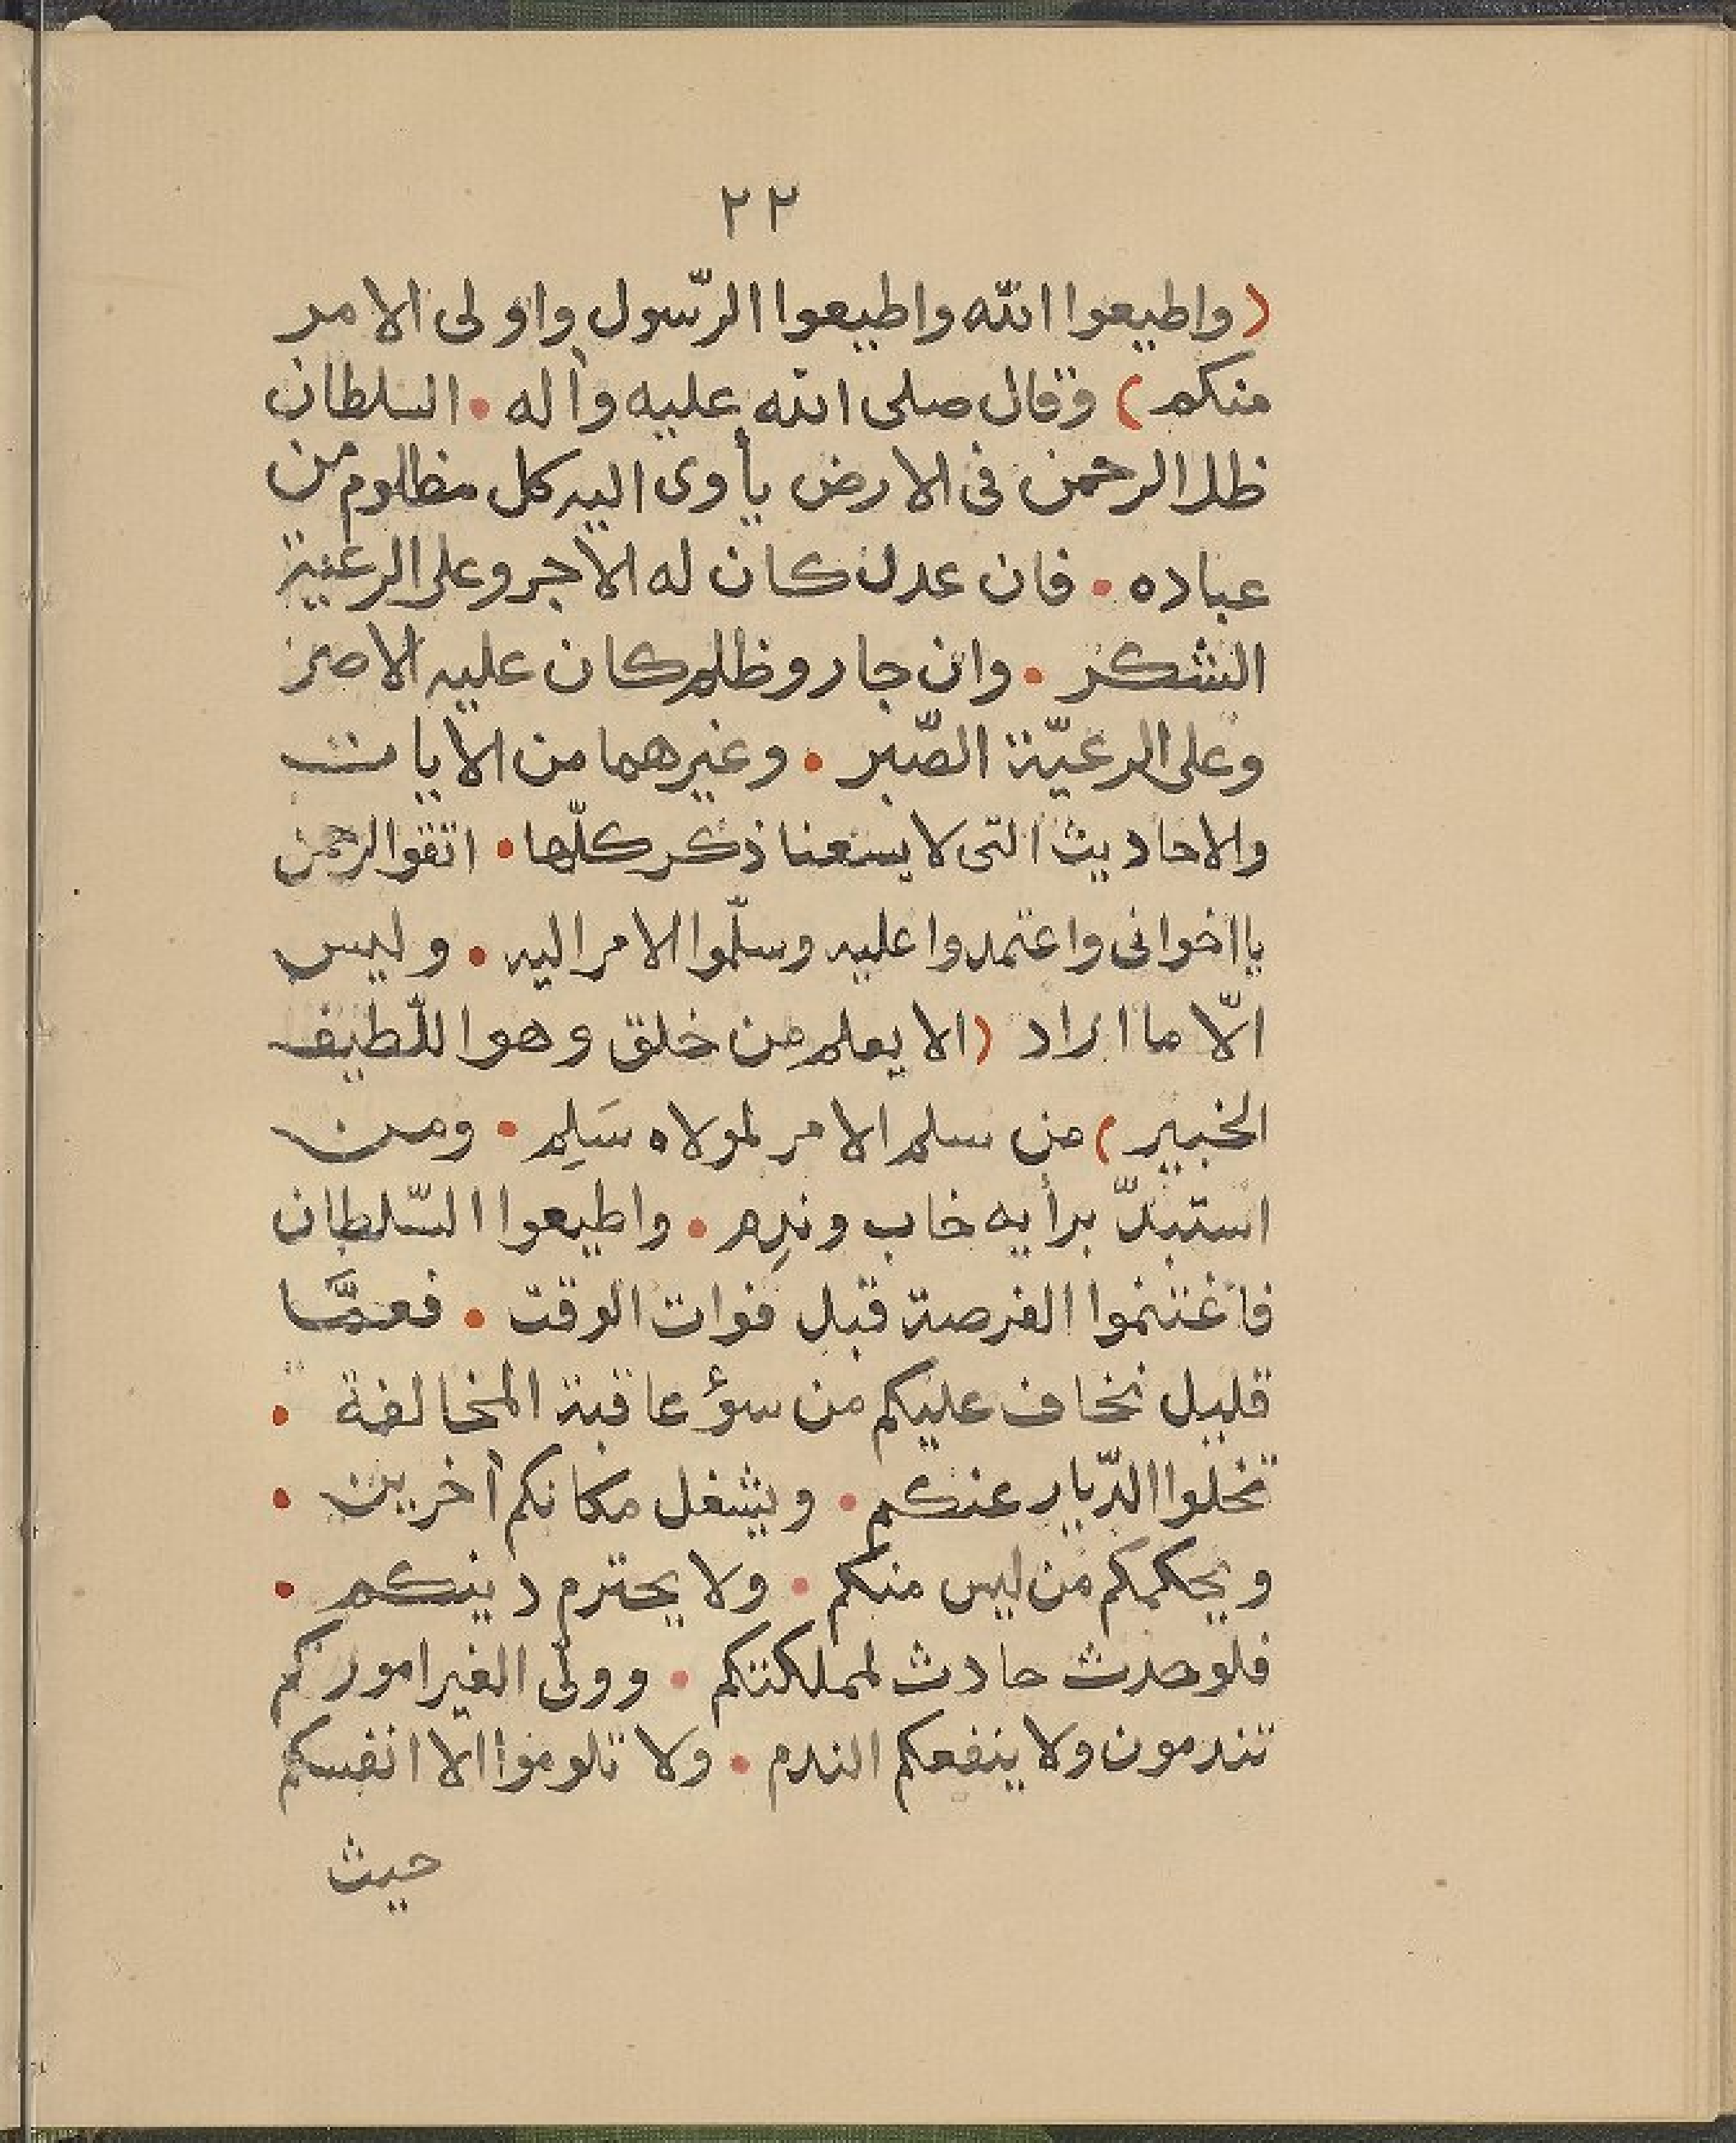 ٢٢
(واطيعوا الله واطيعوا الرّسول واولى الامر
منكم) وقال صلى الله عليه وأله • السلطان
ظل الرحمن فى الارض يأوى اليه كل مظلوم من
عباده • فان عدل كان له الاجر وعلى الرعية
الشكر • وان جار وظلم كان عليه الاصر
وعلى الرعيّة الصّبر • وغيرهما من الايات
والاحاديث التى لا يسعنا ذكر كلّها • اتقوا الرحمن
يا اخوانى واعتمدوا عليه وسلّموا الامر اليه • وليس
الّا ما اراد (الا يعلم من خلق وهو اللّطيف
الخبير) من سلم الامر لمولاه سَلِم • ومن
استبدّ برأيه خاب وندِم • واطيعوا السّلطان
فاغتنموا الفرصة قبل فوات الوقت • فعمَّا
قليل نخاف عليكم من سؤ عاقبة المخالفة •
تخلوا الدّيار عنكم • ويشغل مكانكم أخرين •
ويحكمكم من ليس منكم • ولا يحترم دينكم •
فلو حدث حادث لمملكتكم • وولّى الغير اموركم
تندمون ولا ينفعكم الندم • ولا تلوموا الا انفسكم
حيث